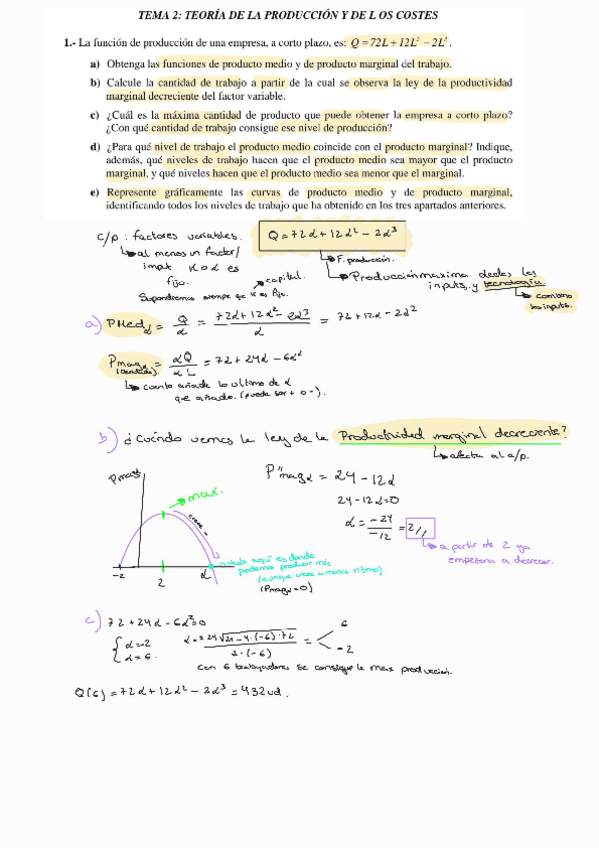 TEMA 2: TEORÍA DE LA PRODUCCIÓN Y DE L OS COSTES
1.- La función de producción de una empresa, a corto plazo, es: Q = 72L + 12L² – 2L³ .
a) Obtenga las funciones de producto medio y de producto marginal del trabajo.
b) Calcule la cantidad de trabajo a partir de la cual se observa la ley de la productividad
marginal decreciente del factor variable.
c) ¿Cuál es la máxima cantidad de producto que puede obtener la empresa a corto plazo?
¿Con qué cantidad de trabajo consigue ese nivel de producción?
d) ¿Para qué nivel de trabajo el producto medio coincide con el producto marginal? Indique,
además, qué niveles de trabajo hacen que el producto medio sea mayor que el producto
marginal, y qué niveles hacen que el producto medio sea menor que el marginal.
e) Represente gráficamente las curvas de producto medio y de producto marginal,
identificando todos los niveles de trabajo que ha obtenido en los tres apartados anteriores.
c/p : factores variables.
Q = 72L + 12L² – 2L³
al menos un factor/
input K o L es
fijo.
F. producción.
capital.
Producción máxima dados los
inputs y tecnología.
Supondremos siempre que K es fijo.
combina
los inputs.
a) PMed L = Q/L = 72L + 12L² – 2L³ / L = 72 + 12L – 2L²
Pmag L = dQ/dL = 72 + 24L – 6L²
(derivada)
cuanto añade lo último de L
que añado. (puede ser + o -).
b) ¿cuándo vemos la ley de la Productividad marginal decreciente?
afecta al c/p.
Pmag
max.
crece -
P'mag L = 24 – 12L
24 – 12L = 0
L = –24/–12 = 2//
a partir de 2 ya
empezará a decrecer.
hasta aquí es donde
podemos producir más
(aunque crece a menos ritmo)
(Pmag L = 0)
-2
2
L
c) 72 + 24L – 6L² = 0
L = -2
L = 6.
6
-2
con 6 trabajadores se consigue la max producción.
Q(6) = 72L + 12L² – 2L³ = 432ud.